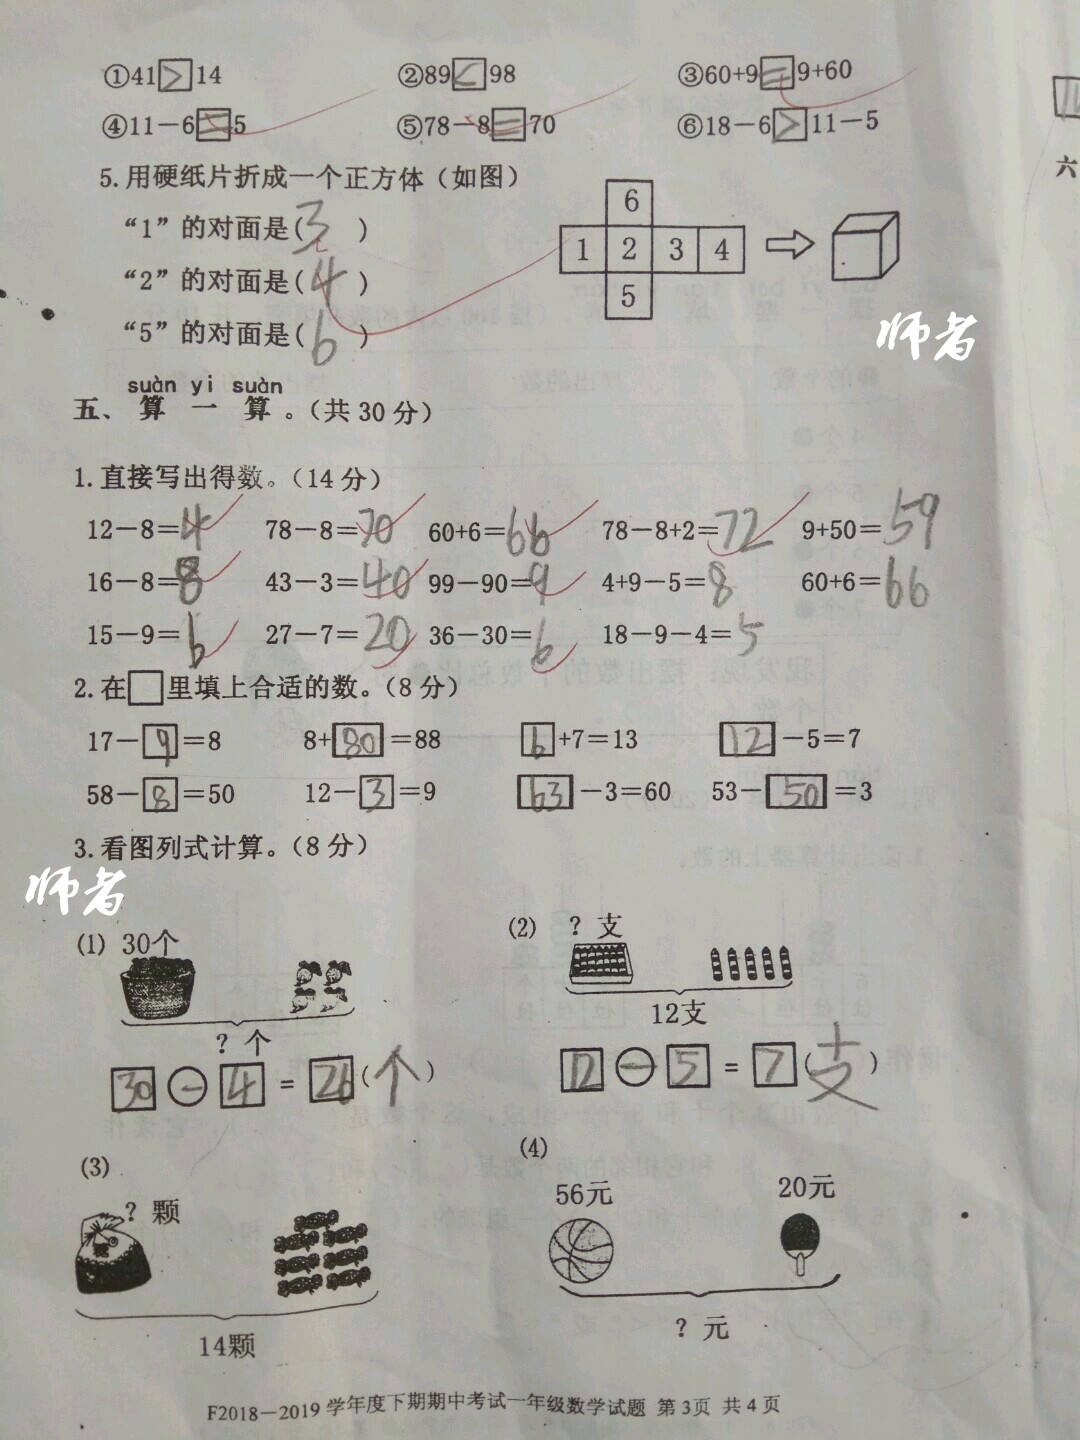 ①41>14 ②89<98 ③60+9=9+60
④11-6=5 ⑤78-8=70 ⑥18-6>11-5
5.用硬纸片折成一个正方体(如图)
“1”的对面是(3)
“2”的对面是(4)
“5”的对面是(6)
6
1 2 3 4
5
师者
suàn yi suàn
五、算一算。(共30分)
1.直接写出得数。(14分)
12-8=4 78-8=70 60+6=66 78-8+2=72 9+50=59
16-8=8 43-3=40 99-90=9 4+9-5=8 60+6=66
15-9=6 27-7=20 36-30=6 18-9-4=5
2.在□里填上合适的数。(8分)
17-9=8 8+80=88 6+7=13 12-5=7
58-8=50 12-3=9 63-3=60 53-50=3
3.看图列式计算。(8分)
师者
(1) 30个
?个
30-4=26(个)
(2) ?支
12支
12-5=7(支)
(3)
?颗
14颗
(4)
56元 20元
?元
F2018-2019学年度下期期中考试一年级数学试题 第3页 共4页
六